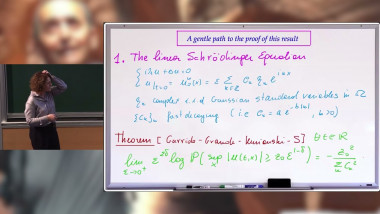 A gentle path to the proof of this result
1. The linear Schrödinger Equation
{ i∂ₜu + Δu = 0
{ u|ₜ₌₀ = u₀^ω(x) = ε Σ_{k∈ℤ} Cₖ ηₖ e^{ikx}
ηₖ complex i.i.d Gaussian standard variables in Ω
{Cₖ}ₖ fast decaying (i.e Cₖ = a e^{-b|k|}, b>0)
Theorem [Garrido-Grande-Kurianski-S] ∀t∈ℝ
lim_{ε→0⁺} ε^{2δ} log P( sup_x |u(t,x)| ≥ z₀ ε^{1-δ}) = - z₀² / Σ_k Cₖ²